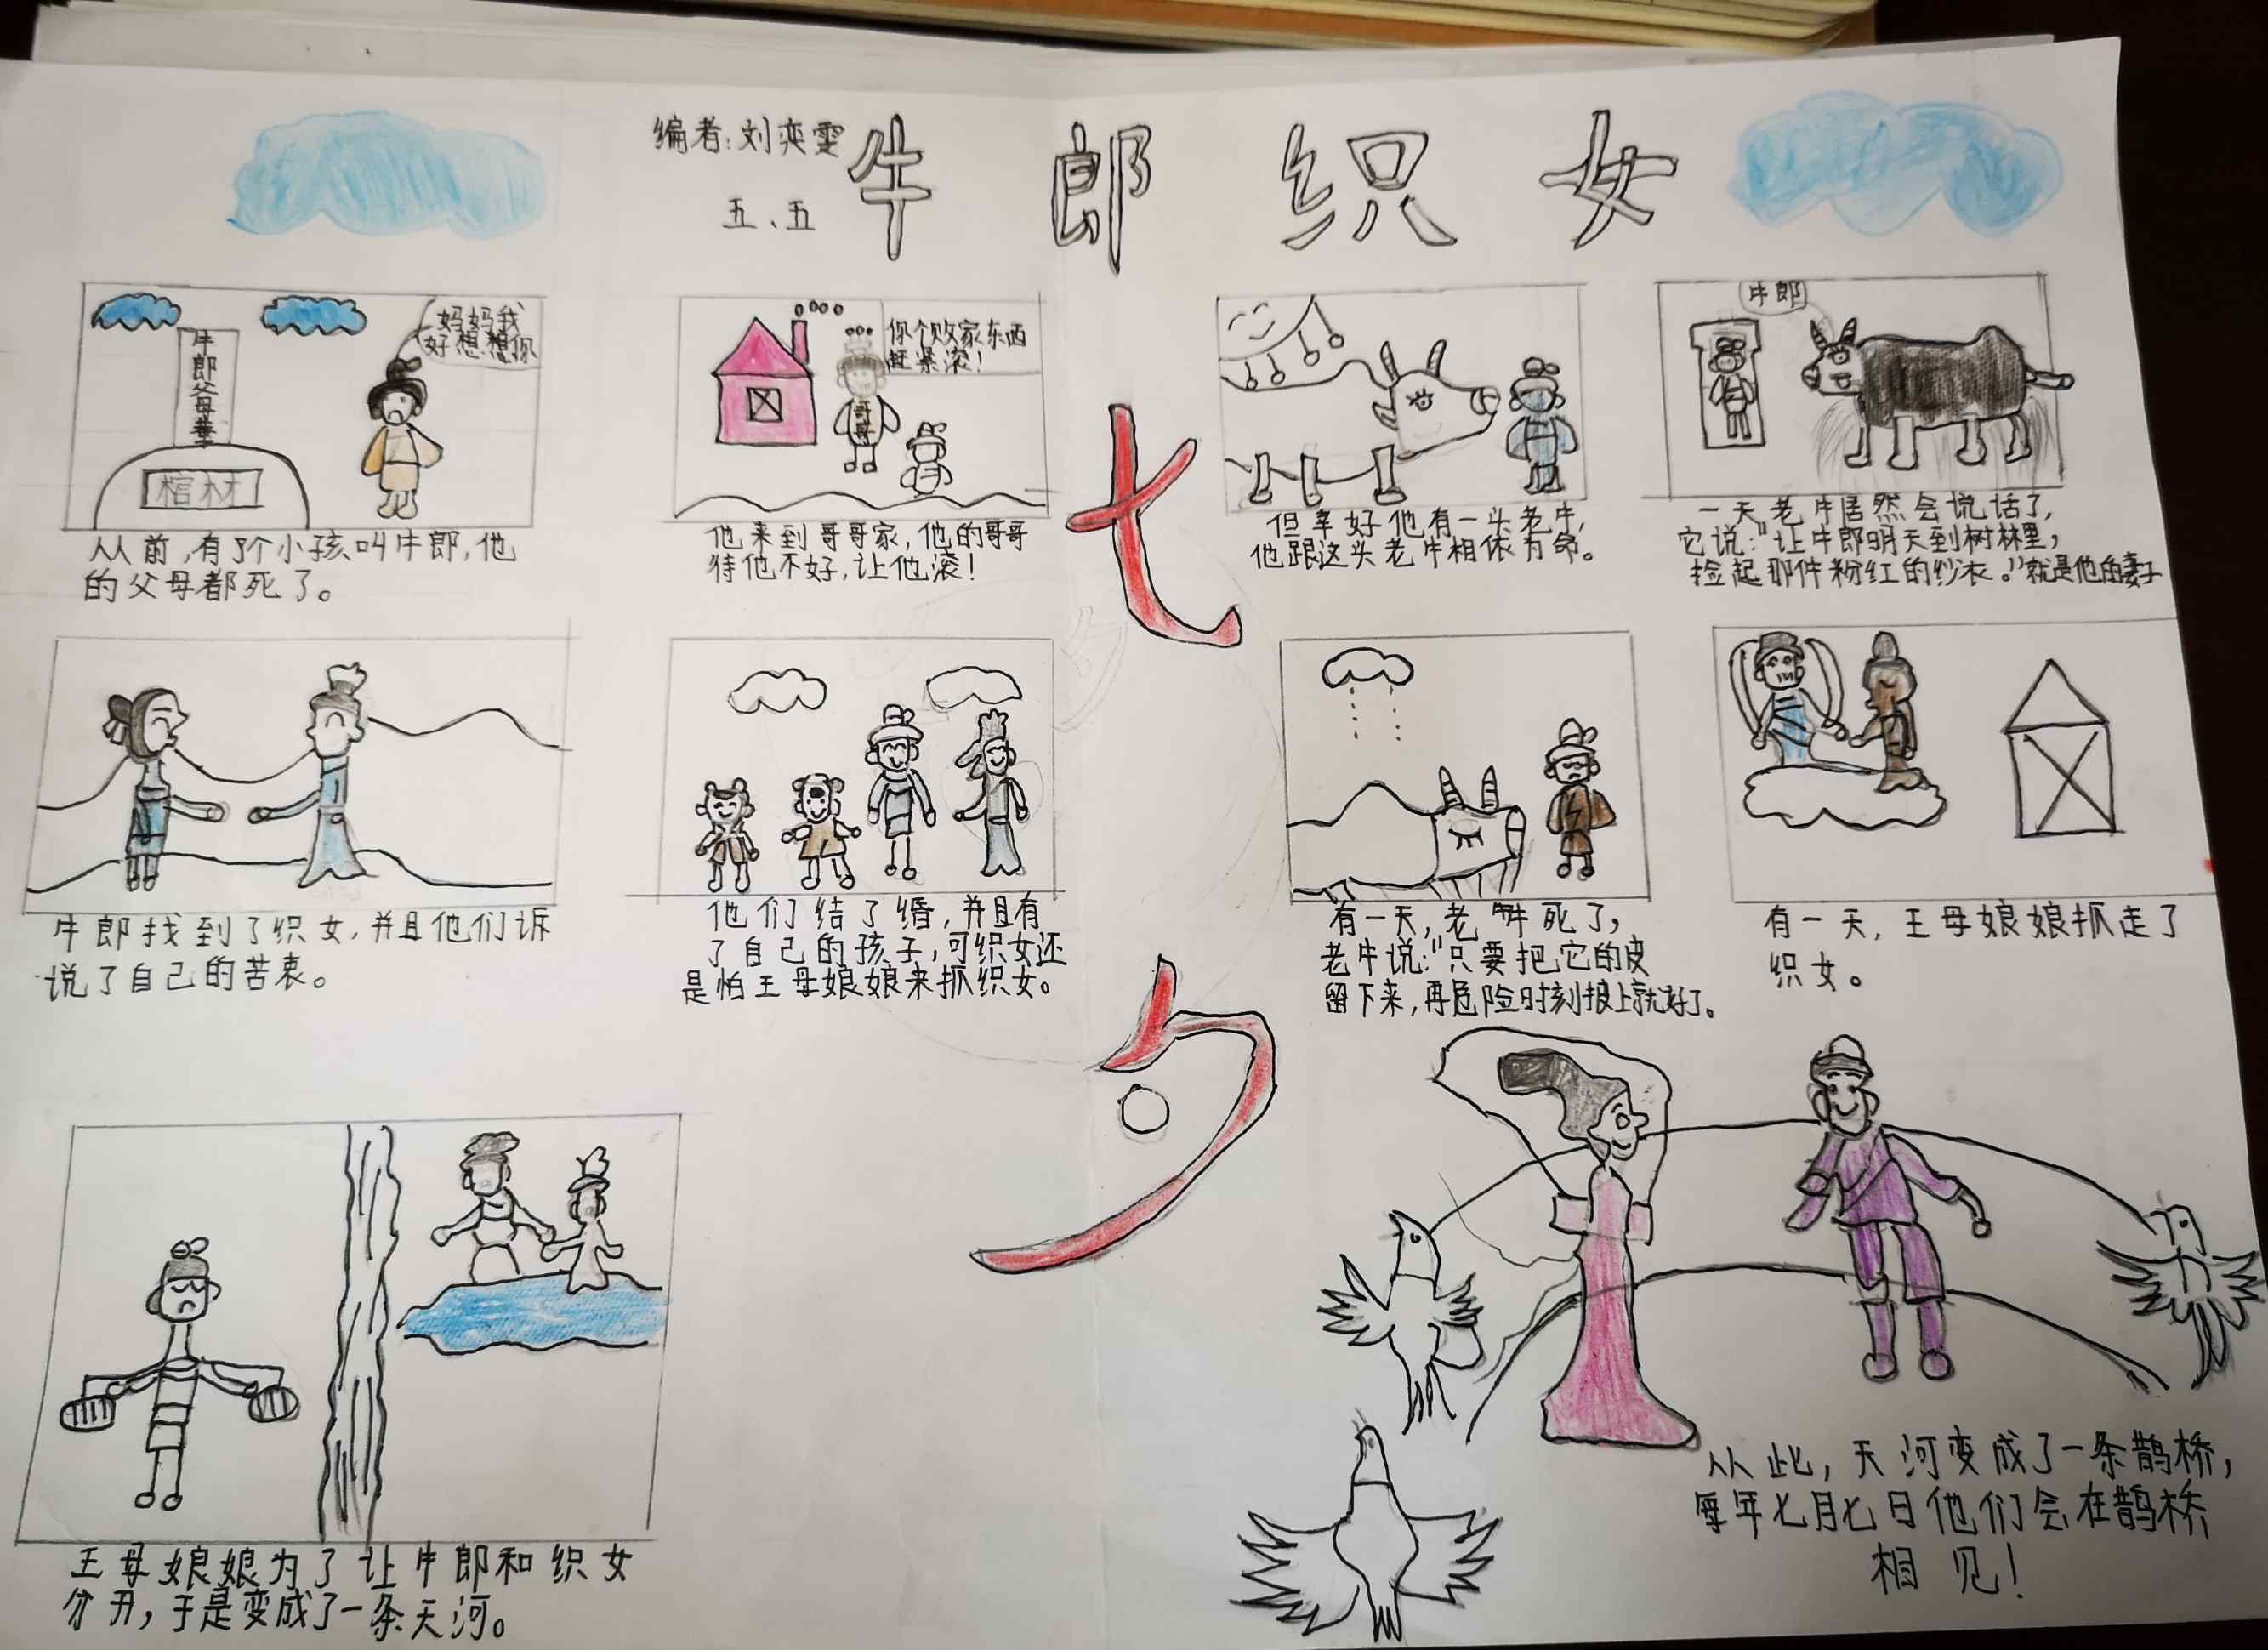 编者:刘奕雯
五、五
牛郎织女
七夕
牛郎爷母墓
棺材
妈妈我
好想想你
从前,有个小孩叫牛郎,他
的父母都死了。
你个败家东西
赶紧滚!
哥哥
他来到哥哥家,他的哥哥
待他不好,让他滚!
但幸好他有一头老牛,
他跟这头老牛相依为命。
牛郎
一天老牛居然会说话了,
它说:"让牛郎明天到树林里,
捡起那件粉红的纱衣。"就是他的妻子
牛郎找到了织女,并且他们诉
说了自己的苦衷。
他们结了婚,并且有
了自己的孩子,可织女还
是怕王母娘娘来抓织女。
有一天,老牛死了,
老牛说:"只要把它的皮
留下来,再危险时刻披上就好了。
有一天,王母娘娘抓走了
织女。
王母娘娘为了让牛郎和织女
分开,于是变成了一条天河。
从此,天河变成了一条鹊桥,
每年七月七日他们会在鹊桥
相见!